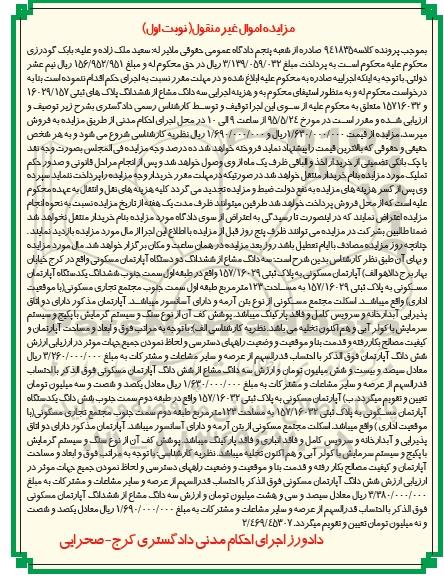 مزایده اموال غیر منقول( نوبت اول)
بموجب پرونده کلاسه ۹۴۱۸۳۵ صادره از شعبه پنجم دادگاه عمومی حقوقی ملایر له: سعید ملک زاده و علیه: بابک گودرزی
محکوم علیه محکوم است به پرداخت مبلغ ۳/۱۳۹/۰۵۹/۰۳۲ ریال در حق محکوم له و مبلغ ۱۵۶/۹۵۲/۹۵۱ ریال نیم عشر
دولتی با توجه به اینکه اجراییه صادره به محکوم علیه ابلاغ شده و در مهلت مقرر نسبت به اجرای حکم اقدام ننموده است بنا به
درخواست محکوم له و به منظور استیفای محکوم به و هزینه اجرایی سه دانگ مشاع از ششدانگ پلاک های ثبتی ۱۶۰۲۹/۱۵۷
و ۱۵۷۱۶۰۳۲ متعلق به محکوم علیه از سوی این اجرا توقیف و توسط کارشناس رسمی دادگستری بشرح زیر توصیف و
ارزیابی شده و مقرر است در مورخ ۹۵/۵/۲۴ از ساعت ۹ الی ۱۰ در محل اجرای احکام مدنی از طریق مزایده به فروش
میرسد. مزایده از قیمت ۱/۶۳۰/۰۰۰/۰۰۰ ریال و ۱/۶۹۰/۰۰۰/۰۰۰ ریال نظریه کارشناسی شروع می شود و به هر شخص
حقیقی و حقوقی که بالاترین قیمت را پیشنهاد نماید فروخته خواهد شد. ده درصد وجه مزایده فی المجلس بصورت وجه نقد
یا چک بانکی تضمینی از خریدار اخذ و الباقی ظرف یک ماه از وی وصول خواهد شد و پس از انجام مراحل قانونی و صدور حکم
تملیک مورد مزایده بنام خریدار منتقل خواهد شد در صورتیکه در مهلت مقرر خریدار وجه مزایده را پرداخت ننماید سپرده
وی پس از کسر هزینه های مزایده به نفع دولت ضبط و مزایده تجدید می گردد کلیه هزینه های نقل و انتقال به عهده محکوم
علیه است که از محل فروش پرداخت خواهد شد. طرفین میتوانند ظرف مدت یک هفته از تاریخ مزایده نسبت به نحوه انجام
مزایده اعتراض نمایند که در اینصورت تا رسیدگی به اعتراض از سوی دادگاه مورد مزایده بنام خریدار منتقل نخواهد شد
ضمنا طالبین بشرکت در مزایده می توانند ظرف پنج روز قبل از مزایده با اطلاع این اجرا از مال مورد مزایده بازدید نمایند.
چنانچه روز مزایده مصادف با ایام تعطیل باشد روز بعد مزایده در همان ساعت و مکان برگزار خواهد شد. مال مورد مزایده
و بهای آن طبق نظر کارشناس بدین شرح است: سه دانگ مشاع از ششدانگ دو دستگاه آپارتمان مسکونی واقع در کرج خیابان
بهار برج دالاهو الف) آپارتمان مسکونی به پلاک ثبتی ۱۵۷/۱۶۰۲۹ واقع در طبقه اول سمت جنوب ششدانگ یکدستگاه آپارتمان
مسکونی به پلاک ثبتی ۱۵۷/۱۶۰۲۹ به مساحت ۱۲۳مترمربع طبقه اول سمت جنوب مجتمع تجاری مسکونی(با موقعیت
اداری) واقع میباشد. اسکلت مجتمع مسکونی از نوع بتن آرمه و دارای آسانسور میباشد. آپارتمان مذکور دارای دو اتاق
پذیرایی آبدارخانه و سرویس کامل و فاقد پارکینگ میباشد. پوشش کف آن از نوع سنگ و سیستم گرمایش با پکیج و سیستم
سرمایش با کولر آبی و هم اکنون تخلیه می باشد. نظریه کارشناسی الف) با توجه به مراتب فوق و ابعاد و مساحت آپارتمان و
کیفیت مصالح بکار رفته و قدمت بنا و موقعیت و وضعیت راههای دسترسی و لحاظ نمودن جمیع جهات موثر در ارزیابی ارزش
شش دانگ آپارتمان فوق الذکر با احتساب قدرالسهم از عرصه و سایر مشاعات و مشترکات به مبلغ ۳/۲۶۰/۰۰۰/۰۰۰ ریال
معادل سیصد و بیست و شش میلیون تومان و ارزش سه دانگ مشاع از شش دانگ آپارتمان مسکونی فوق الذکر با احتساب
قدرالسهم از عرصه و سایر مشاعات و مشترکات به مبلغ ۱/۶۳۰/۰۰۰/۰۰۰ ریال معادل یکصد و شصت و سه میلیون تومان
تعیین و تقویم میگردد. ب) آپارتمان مسکونی به پلاک ثبتی ۱۵۷/۱۶۰۳۲ واقع در طبقه دوم سمت جنوب شش دانگ یکدستگاه
آپارتمان مسکونی به پلاک ثبتی ۱۵۷/۱۶۰۳۲ به مساحت ۱۲۳مترمربع طبقه دوم سمت جنوب مجتمع تجاری مسکونی(با
موقعیت اداری) واقع میباشد. اسکلت مجتمع مسکونی از بتن آرمه و دارای آسانسور میباشد. آپارتمان مذکور دارای دو اتاق
پذیرایی و آبدارخانه و سرویس کامل و فاقد انباری و فاقد پارکینگ میباشد. پوشش کف آن از نوع سنگ و سیستم گرمایش
با پکیج و سیستم سرمایش با کولر آبی و هم اکنون تخلیه میباشد. نظریه کارشناسی: با توجه به مراتب فوق و ابعاد و مساحت
آپارتمان و کیفیت مصالح بکار رفته و قدمت بنا و موقعیت و وضعیت راههای دسترسی و لحاظ نمودن جمیع جهات موثر در
ارزیابی ارزش شش دانگ آپارتمان مسکونی فوق الذکر با احتساب قدرالسهم از عرصه و سایر مشاعات و مشترکات به مبلغ
۳/۳۸۰/۰۰۰/۰۰۰ ریال معادل سیصد و سی و هشت میلیون تومان و ارزش سه دانگ مشاع از ششدانگ آپارتمان مسکونی
فوق الذکر با احتساب قدرالسهم از عرصه و سایر مشاعات و مشترکات به مبلغ ۱/۶۹۰/۰۰۰/۰۰۰ ریال معادل یکصد و شصت
و نه میلیون تومان تعیین و تقویم میگردد. ۲/۴۶۹/۴۵۳۰۷
دادورز اجرای احکام مدنی دادگستری کرج - صحرایی